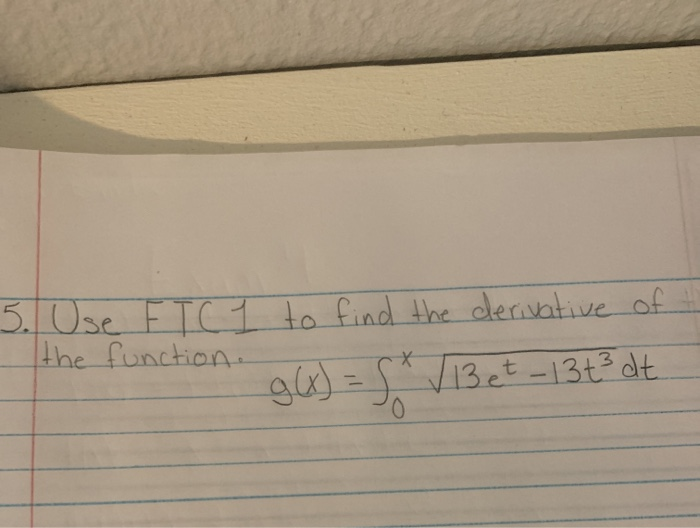 5. Use FTC1 to find the derivative of
the function.
g(x) = ∫₀ˣ √(13e^t - 13t³) dt